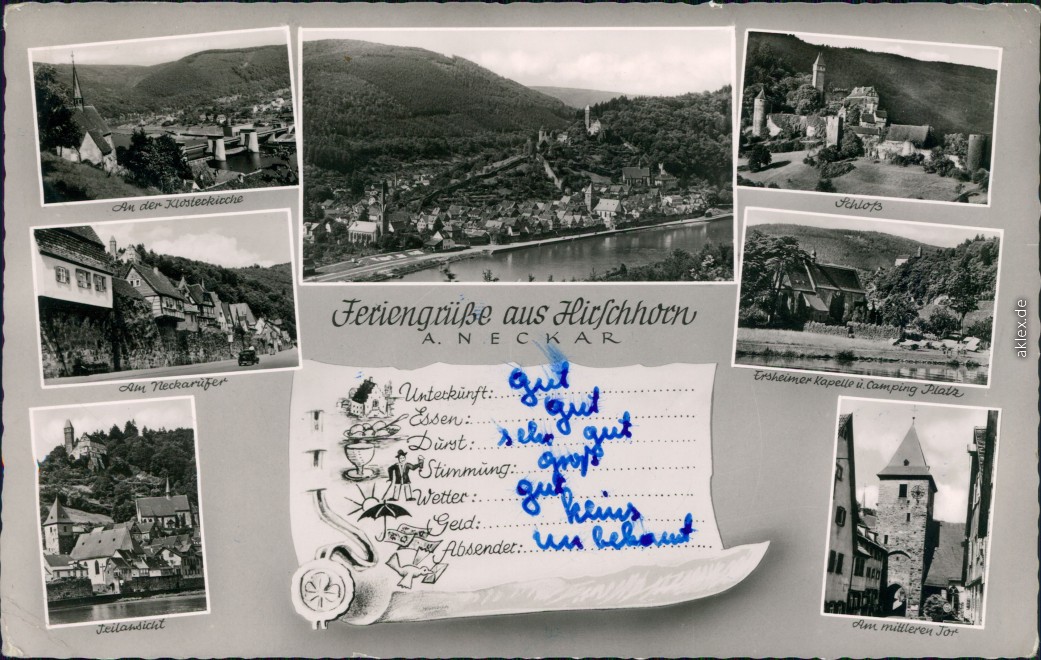 An der Klosterkirche
Schloß
Am Neckarufer
Feriengrüße aus Hirschhorn
A. NECKAR
Ersheimer Kapelle u. Camping Platz
Unterkunft: gut
Essen: gut
Durst: sehr gut
Stimmung: groß
Wetter: gut
Geld: keins
Absender: unbekannt
Teilansicht
Am mittleren Tor
aklex.de